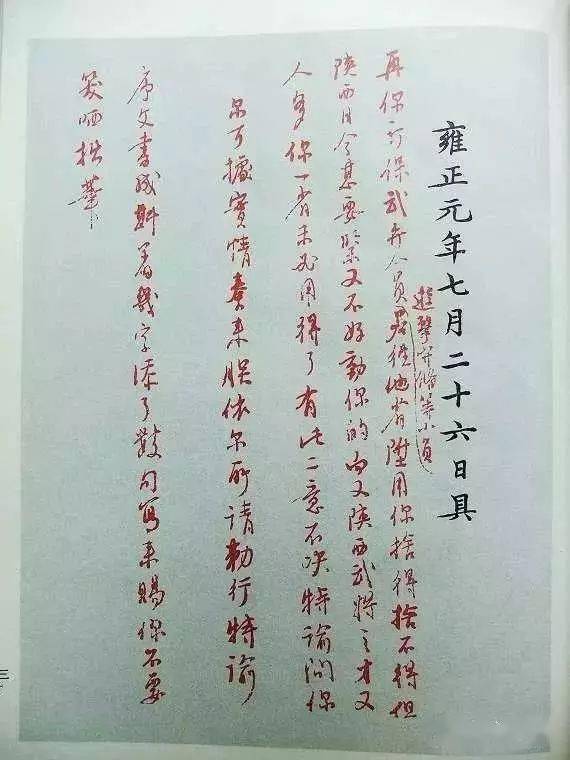 雍正元年七月二十六日具
遊擊守偹等小員
再你所保武弁人員若從他省陞用你捨得捨不得但
陝西目今甚要緊又不好動你的向又陝西武將之才又
人多你一省未必用得了有此二意不決特諭問你
尔可據實情奏来朕依尔所請勅行特諭
序文書成斟着幾字添了數句寫来賜你不要
笑哂拙筆
三